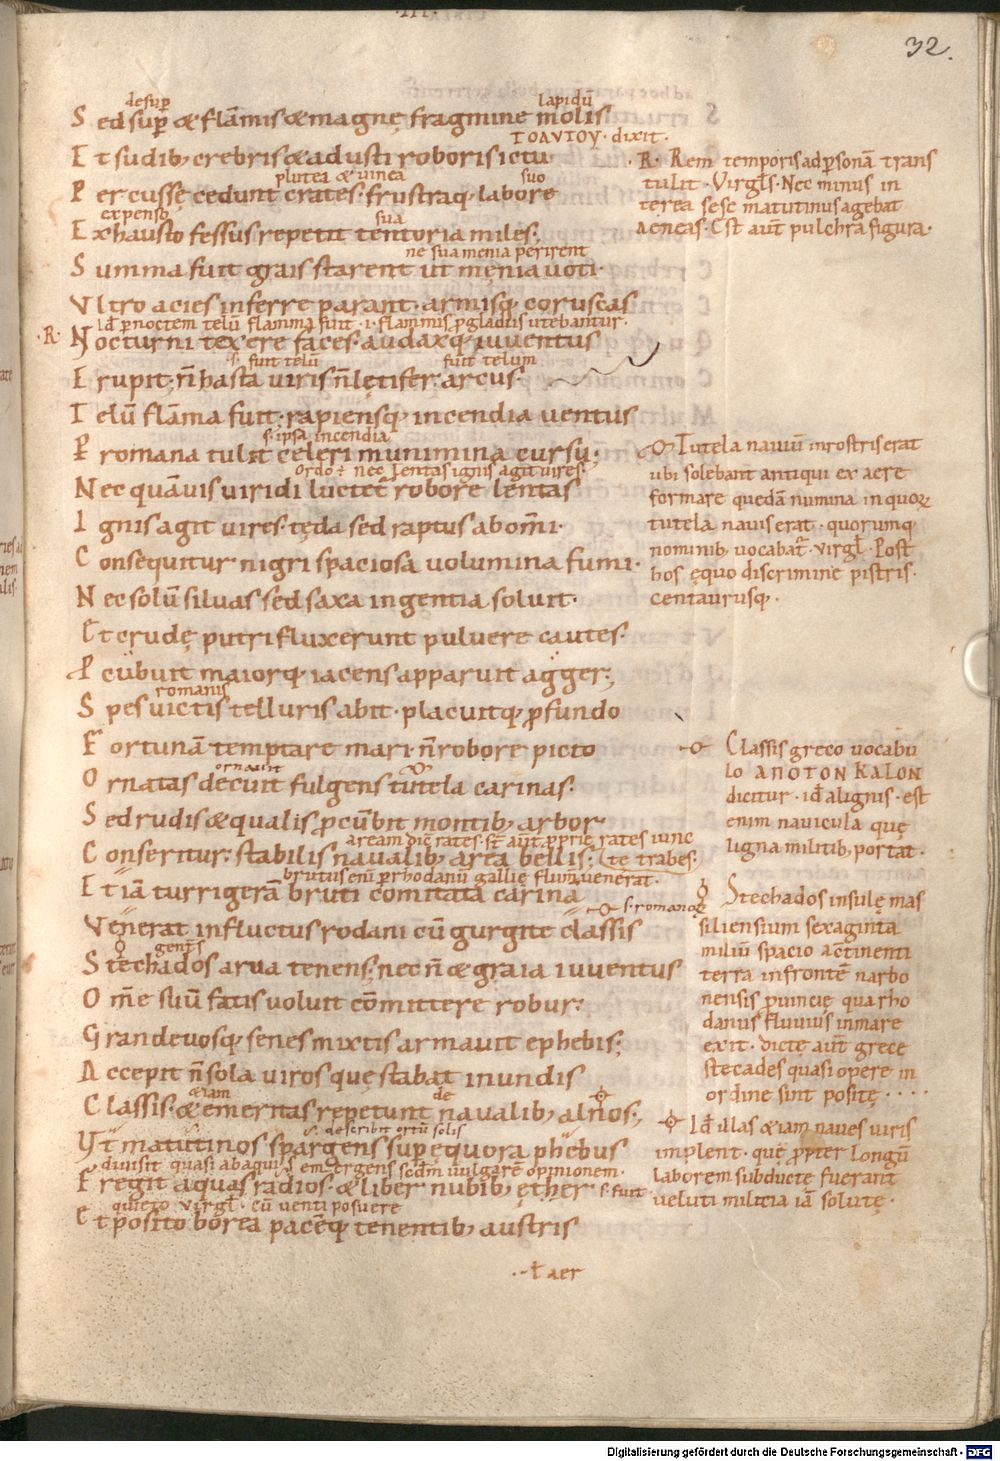 .III.
32.
desup̄ lapidū
S ed sup̄ & flāmis & magnę fragmine molis
TOAVTOY · dixit ·
E t sudib; crebris & adusti roboris ictu·
plutea & vinea suo
P ercussę cedunt crates· frustraq; labore
expenso sua
E xhausto fessus repetit tentoria miles;
ne sua menia perirent
S umma fuit grais starent ut menia voti·
V ltro acies inferre parant· armisq; coruscas
Id̄ p noctem telū flamma fuit · i · flammis p gladiis utebantur·
·R· N octurni texere faces· audaxq; iuventus
s· fuit telū fuit telum
E rupit; n̄ hasta viris n̄ lętifer arcus·
T elū flāma fuit· rapiensq; incendia ventus
s· ipsa incendia
P romana tulit celeri munimina cursu;
Ordo ÷ nec lentas ignis agit vires·
N ec quāvis viridi luctet̄ robore lentas
I gnis agit vires· tęda sed raptus ab om̄i·
C onsequitur nigri spaciosa volumina fumi·
N ec solū silvas sed saxa ingentia soluit·
E t crudę putri fluxerunt pulvere cautes·
P cūbuit maiorq; iacens apparuit agger;
romanis
S pes victis telluris abit· placuitq; p̄fundo
F ortunā temptare mari· n̄ robore picto
ornavit
O rnatas decuit fulgens tutela carinas·
S ed rudis & qualis p̄cūbit montib; arbor
aream dic̄ rates· st̄ aut̄ p̄prie rates iunc
C onseritur· stabilis navalib; area bellis; te trabes·
brutus enī p rhodanū gallię flumū venerat·
E t iā turrigerā bruti comitata carina
s· romanos
V enerat in fluctus rodani cū gurgite classis
gent̄s
S techados arva tenens; nec n̄ & graia iuventus
O m̄e suū fatis voluit cōmittere robur·
G randevosq; senes mixtis armavit ephebis;
A ccepit n̄ sola viros que stabat in undis
&iam de
C lassis· & emeritas repetunt navalib; alnos;
s· describit ortū solis
V t matutinos spargens sup̄ ęquora phebus
divisit quasi ab aquis emergens scd̄m vulgarē opinionem·
F regit aquas radios· & liber nubib; ęther s· fuit
quieto virgl̄· cū venti posuere
E t posito borea pacēq; tenentib; austris
·ł aer
R· Rem temporis ad p̄sonā trans
tulit· Virgl̄s· Nec minus in
terea sese matutinus agebat
Aeneas· Est aut̄ pulchra figura·
Tutela naviū in rostris erat
ubi solebant antiqui ex aere
formare quedā numina in quoꝝ
tutela navis erat· quorumq;
nominib; vocabat̄· virgl̄· Post
hos ęquo discrimine pistris·
centaurusq;·
Classis greco vocabu
lo ΑΠΟΤΟΝ ΚΑLΟΝ
dicitur· id̄ a lignis· est
enim navicula quę
ligna militib; portat·
Stechados insulę mas
siliensium sexaginta
miliū spacio a c̄tinenti
terra in frontē narbo
nensis p̄vincię qua rho
danus fluvius in mare
exit· dictę aut̄ grece
stecades quasi opere in
ordine sint positę····
Id̄ illas &iam naves viris
implent· quę p̄pter longū
laborem subducte fuerant
veluti militia iā solutę·
Digitalisierung gefördert durch die Deutsche Forschungsgemeinschaft - DFG